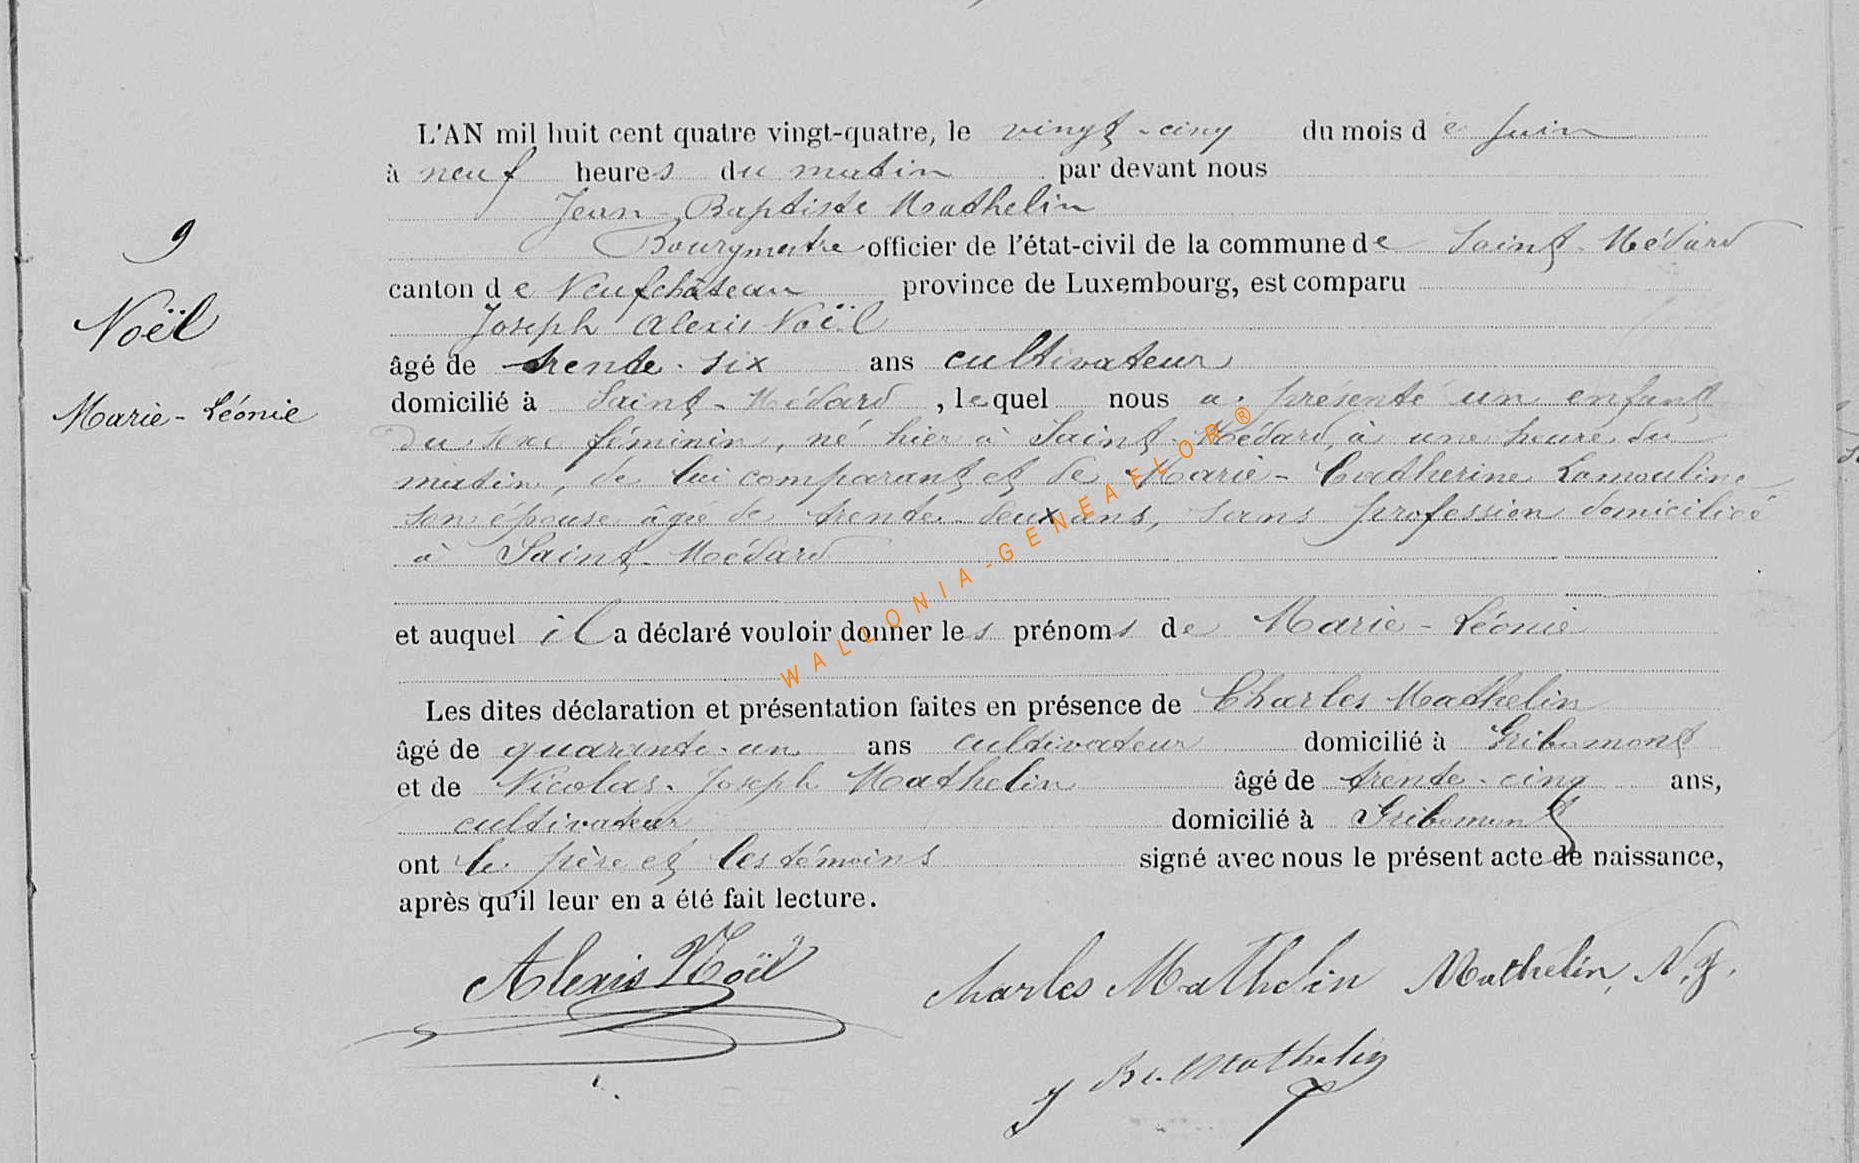 L'AN mil huit cent quatre vingt-quatre, le vingt-cinq du mois de Juin
à neuf heures du matin par devant nous
Jean-Baptiste Mathelin
9
Bourgmestre officier de l'état-civil de la commune de Saint-Médard
canton de Neufchâteau province de Luxembourg, est comparu
Noël
Joseph Alexis Noël
âgé de trente-six ans cultivateur
Marie-Léonie
domicilié à Saint-Médard, lequel nous a présenté un enfant
du sexe féminin, né hier à Saint-Médard, à une heure du
matin, de lui comparant et de Marie-Catherine Lamouline
son épouse âgée de trente-deux ans, sans profession domiciliée
à Saint-Médard
et auquel il a déclaré vouloir donner les prénoms de Marie-Léonie
Les dites déclaration et présentation faites en présence de Charles Mathelin
âgé de quarante-un ans cultivateur domicilié à Gribomont
et de Nicolas-Joseph Mathelin âgé de trente-cinq ans,
cultivateur domicilié à Gribomont
ont le père et les témoins signé avec nous le présent acte de naissance,
après qu'il leur en a été fait lecture.
Alexis Noël Charles Mathelin Mathelin, N.J.
J Bte Mathelin
WALLONIA-GENEAELOR®